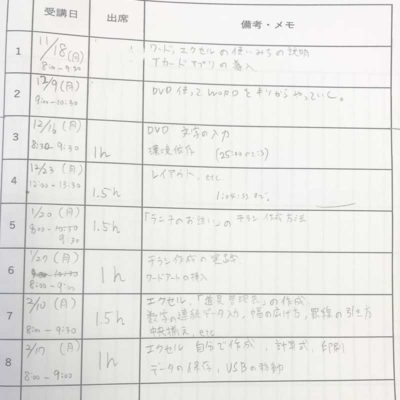 受講日 出席 備考・メモ
1
11/18(月)
8:00-9:30
ワード、エクセルの使いみちの説明
Tカードアプリの導入
2
12/9(月)
9:00-10:30
DVD使ってWORDを
3
12/16(月)
8:30-9:30
1h
DVD 文字の入力
環境依存
4
12/23(月)
12:00-13:30
1.5h
レイアウト、etc
5
1/20(月)
8:00-
9:30
1.5h
「ランチのお誘い」のチラシ作成方法
6
1/27(月)
1h
チラシ作成の実践
ワードアートの挿入
7
2/10(月)
8:00-9:30
1.5h
エクセル、の作成
数字の連続データ入力、幅の広げ方、罫線の引き方
中央揃え、etc
8
2/17(月)
8:00-9:00
1h
エクセル 自分で作成、計算式、印刷
データの保存、USBの移動